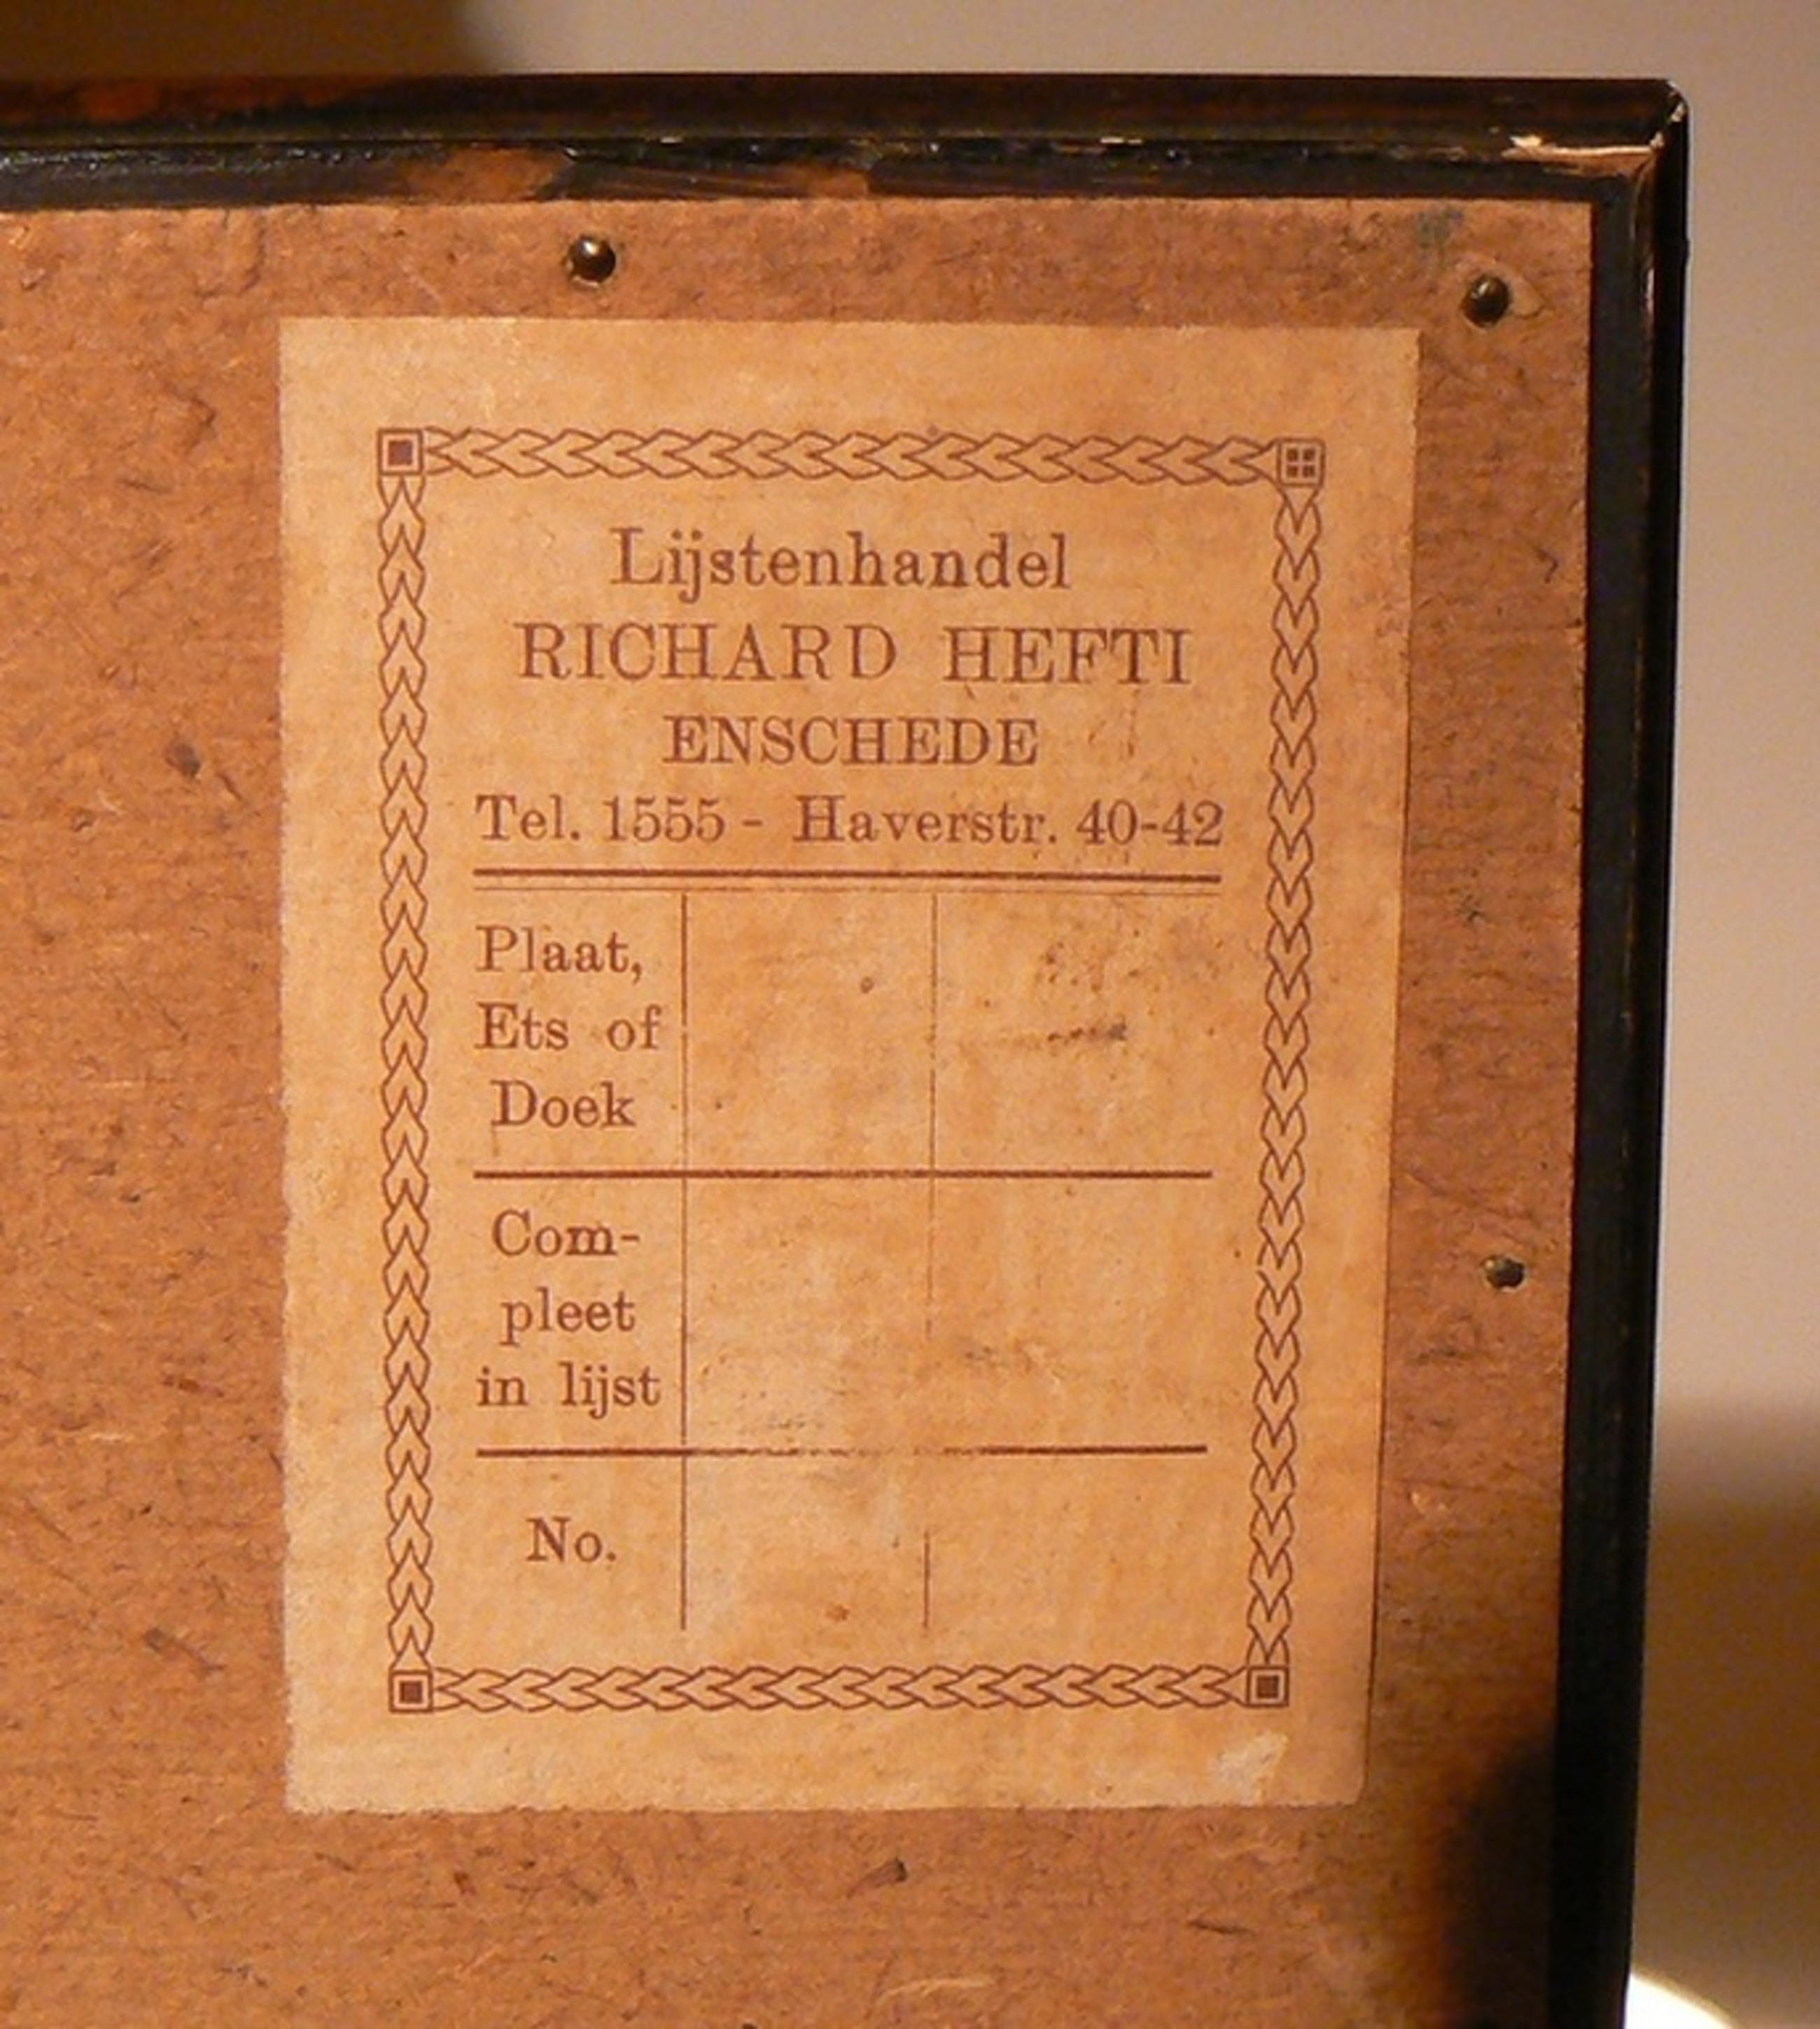 Lijstenhandel
RICHARD HEFTI
ENSCHEDE
Tel. 1555 - Haverstr. 40-42
Plaat,
Ets of
Doek
Com-
pleet
in lijst
No.